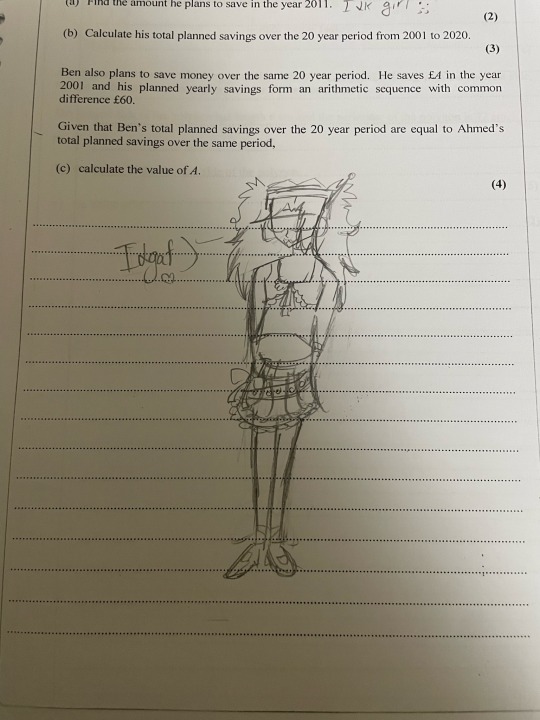 (a) Find the amount he plans to save in the year 2011. Idk girl
(2)
(b) Calculate his total planned savings over the 20 year period from 2001 to 2020.
(3)
Ben also plans to save money over the same 20 year period. He saves £A in the year
2001 and his planned yearly savings form an arithmetic sequence with common
difference £60.
Given that Ben's total planned savings over the 20 year period are equal to Ahmed's
total planned savings over the same period,
(c) calculate the value of A.
(4)
Idgaf